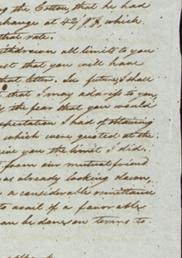 the Cotton, that he had
change at 42/78, which
that rate.
withdrawn all limit to you
that you will have
that letter. In future, I shall
that I may address to you
the fear that you would
expectation I had of obtaining
which were quoted at the
give you the limit I did.
from our mutual friend
was already looking down,
a considerable remittance
to avail of a favorable
can be done on terms to